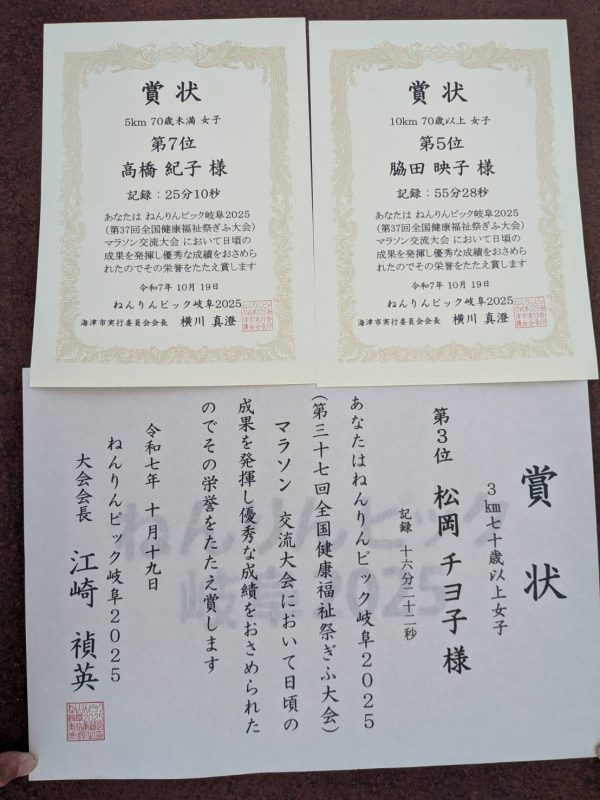 賞状
5km 70歳未満 女子
第7位
高橋 紀子 様
記録：25分10秒
あなたは ねんりんピック岐阜2025
(第37回全国健康福祉祭ぎふ大会)
マラソン交流大会 において日頃の
成果を発揮し優秀な成績をおさめら
れたのでその栄誉をたたえ賞します
令和7年 10月 19日
ねんりんピック岐阜2025
海津市実行委員会会長 横川 真澄
賞状
10km 70歳以上 女子
第5位
脇田 映子 様
記録：55分28秒
あなたは ねんりんピック岐阜2025
(第37回全国健康福祉祭ぎふ大会)
マラソン交流大会 において日頃の
成果を発揮し優秀な成績をおさめら
れたのでその栄誉をたたえ賞します
令和7年 10月 19日
ねんりんピック岐阜2025
海津市実行委員会会長 横川 真澄
賞状
3km七十歳以上女子
第3位 松岡 チヨ子 様
記録 十六分二十二秒
あなたはねんりんピック岐阜2025
(第三十七回全国健康福祉祭ぎふ大会)
マラソン 交流大会において日頃の
成果を発揮し優秀な成績をおさめられた
のでその栄誉をたたえ賞します
令和七年 十月十九日
ねんりんピック岐阜2025
大会会長 江崎 禎英
ねんりんピック
岐阜2025